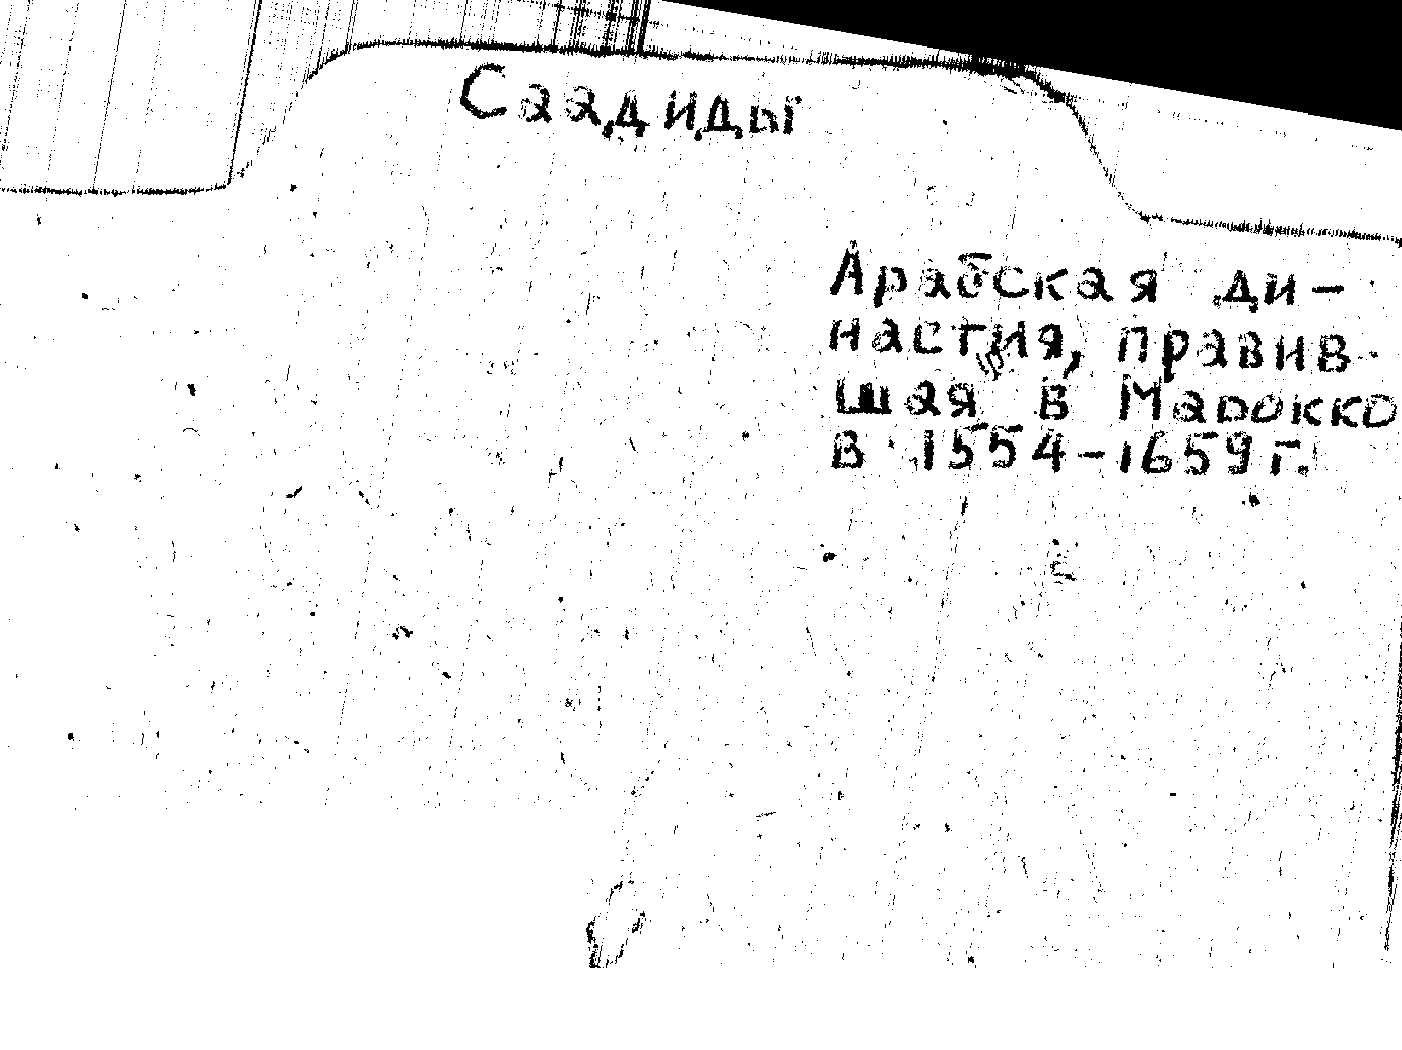 Саадиды
Арабская ди-
настия, правив
шая в Марокко
в 1554-1659 г.